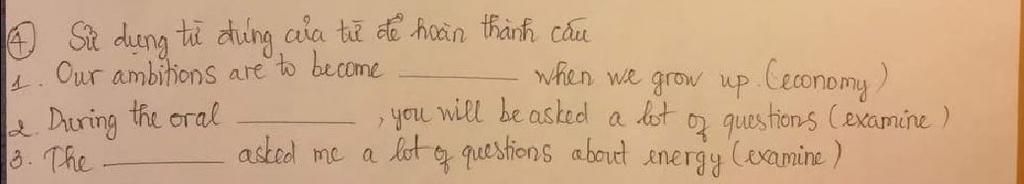 ④ Sử dụng từ đúng của từ để hoàn thành câu
1. Our ambitions are to become ________ when we grow up. (economy)
2. During the oral ________, you will be asked a lot of questions (examine)
3. The ________ asked me a lot of questions about energy (examine)